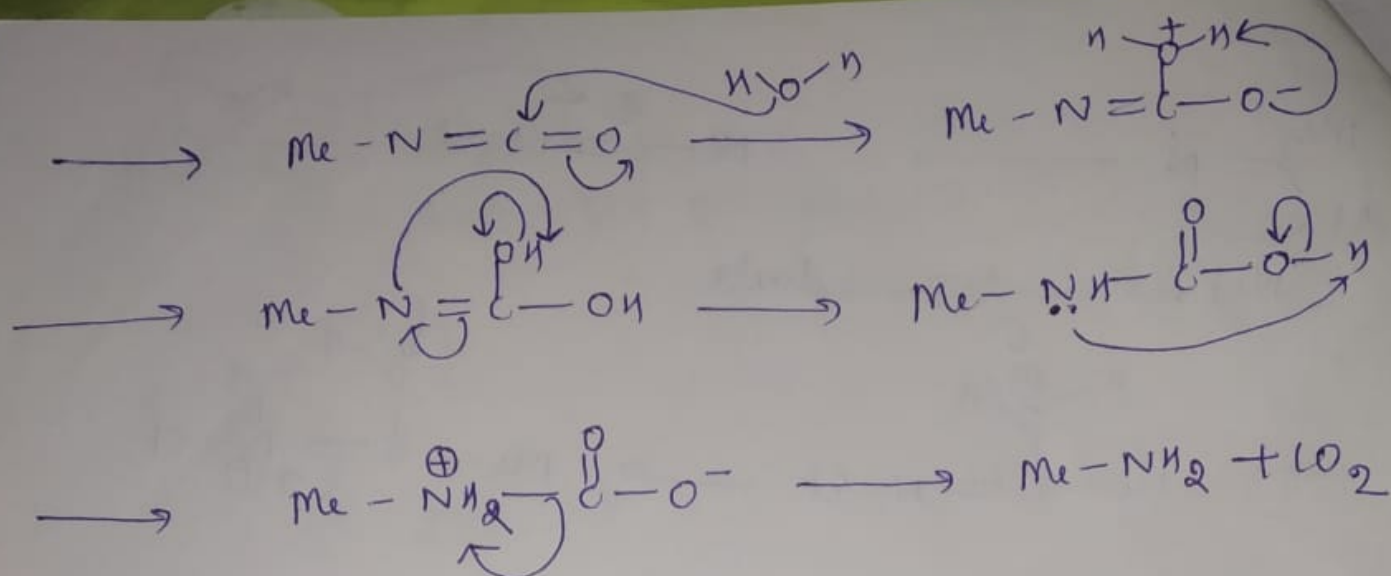 ⟶ Me - N = C = O H O H ⟶ Me - N = C — O⁻ H — O⁺ — H
⟶ Me - N = C — OH OH ⟶ Me - N̤H - C — O — H O
⟶ Me - N⊕H₂ — C — O⁻ O ⟶ Me - NH₂ + CO₂